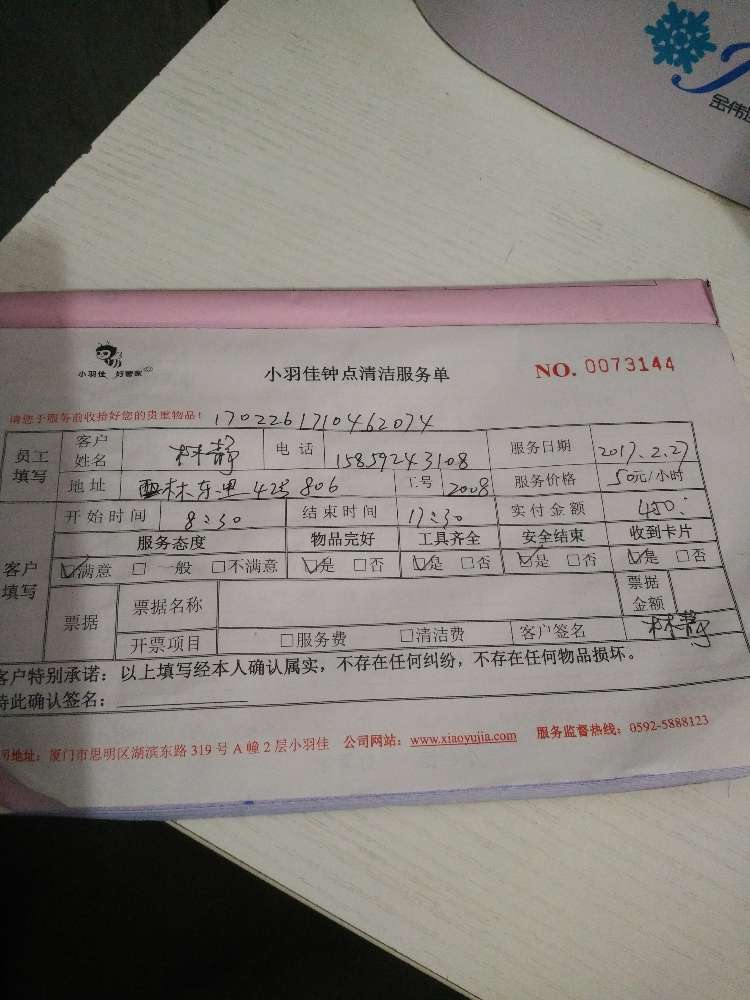 金伟
小羽佳 好管家
小羽佳钟点清洁服务单
NO. 0073144
请您于服务前收拾好您的贵重物品！ 1702261710462074
员工填写 客户姓名 林静 电话 15859243108 服务日期 2017.2.27
地址 西林东里42号806 工号 2008 服务价格 50元/小时
客户填写 开始时间 8:30 结束时间 17:30 实付金额 450
服务态度 物品完好 工具齐全 安全结束 收到卡片
☑满意 □一般 □不满意 ☑是 □否 ☑是 □否 ☑是 □否 ☑是 □否
票据 票据名称 票据金额
开票项目 □服务费 □清洁费 客户签名 林静
客户特别承诺：以上填写经本人确认属实，不存在任何纠纷，不存在任何物品损坏。
特此确认签名：
司地址：厦门市思明区湖滨东路319号A幢2层小羽佳 公司网站：www.xiaoyujia.com 服务监督热线：0592-5888123